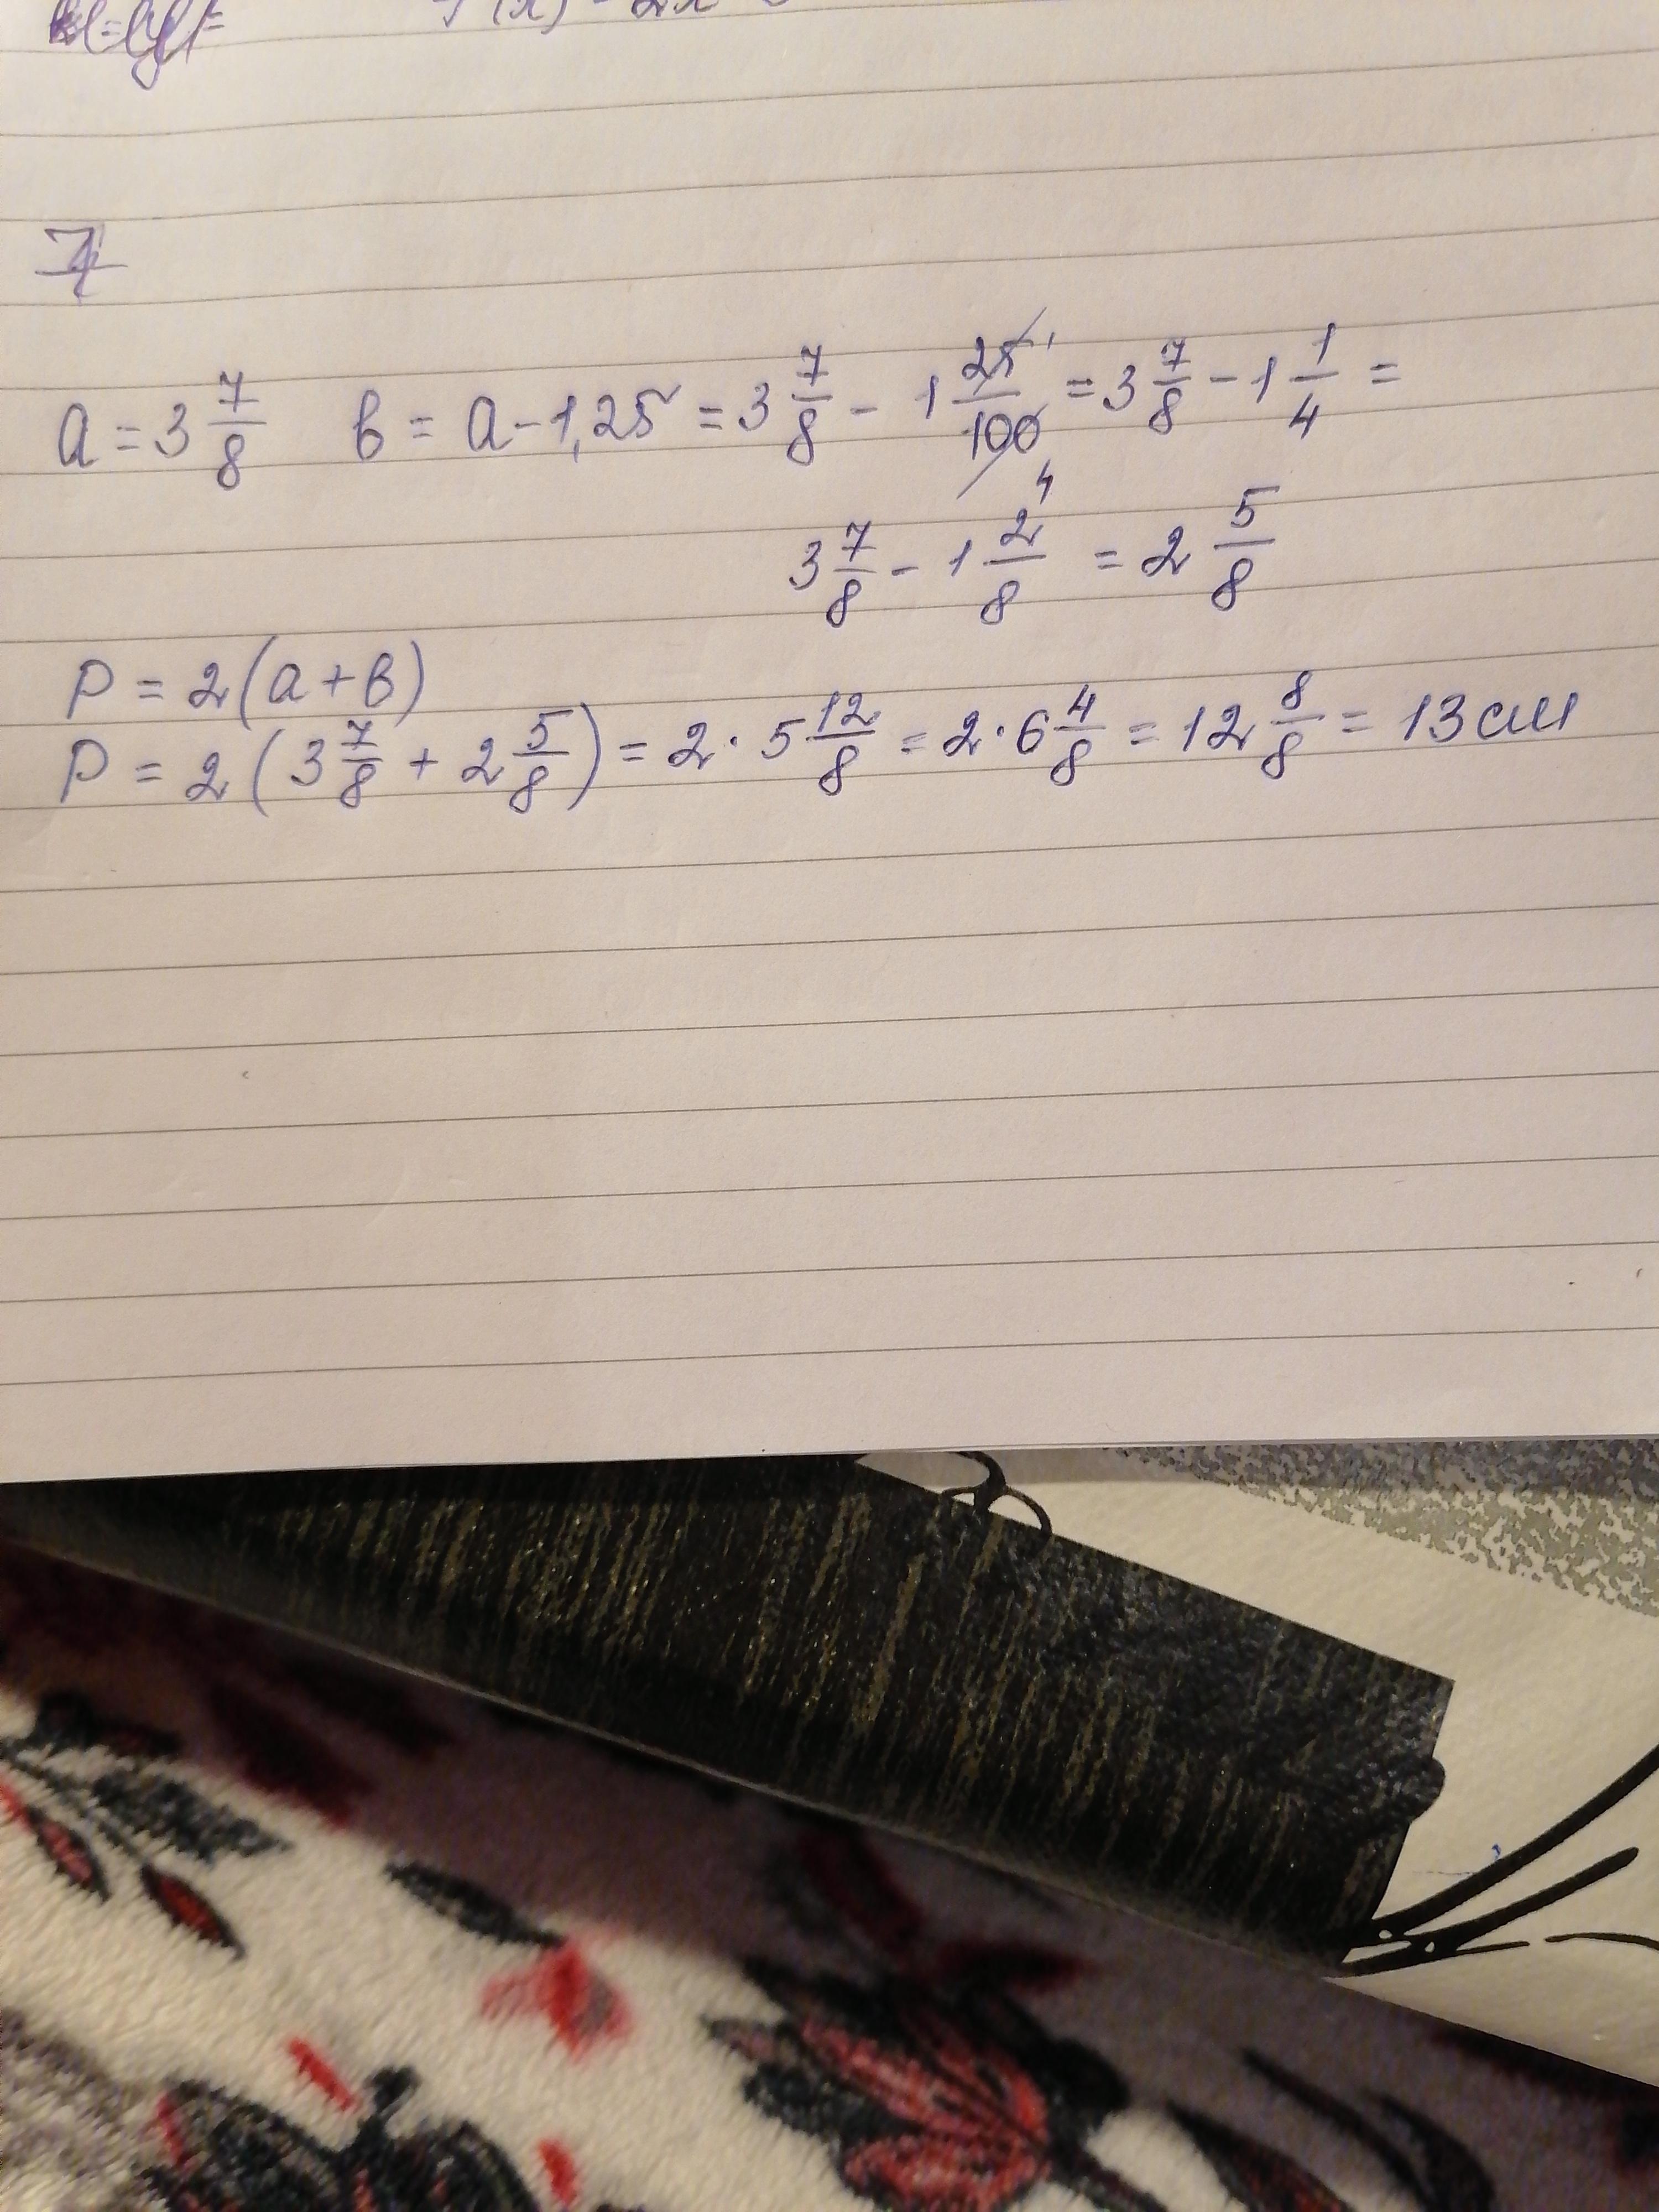 7
a = 3 7/8 в = a - 1,25 = 3 7/8 - 1 25/100 = 3 7/8 - 1 1/4 =
3 7/8 - 1 2/8 = 2 5/8
P = 2(a + в)
P = 2(3 7/8 + 2 5/8) = 2 · 5 12/8 = 2 · 6 4/8 = 12 8/8 = 13 см